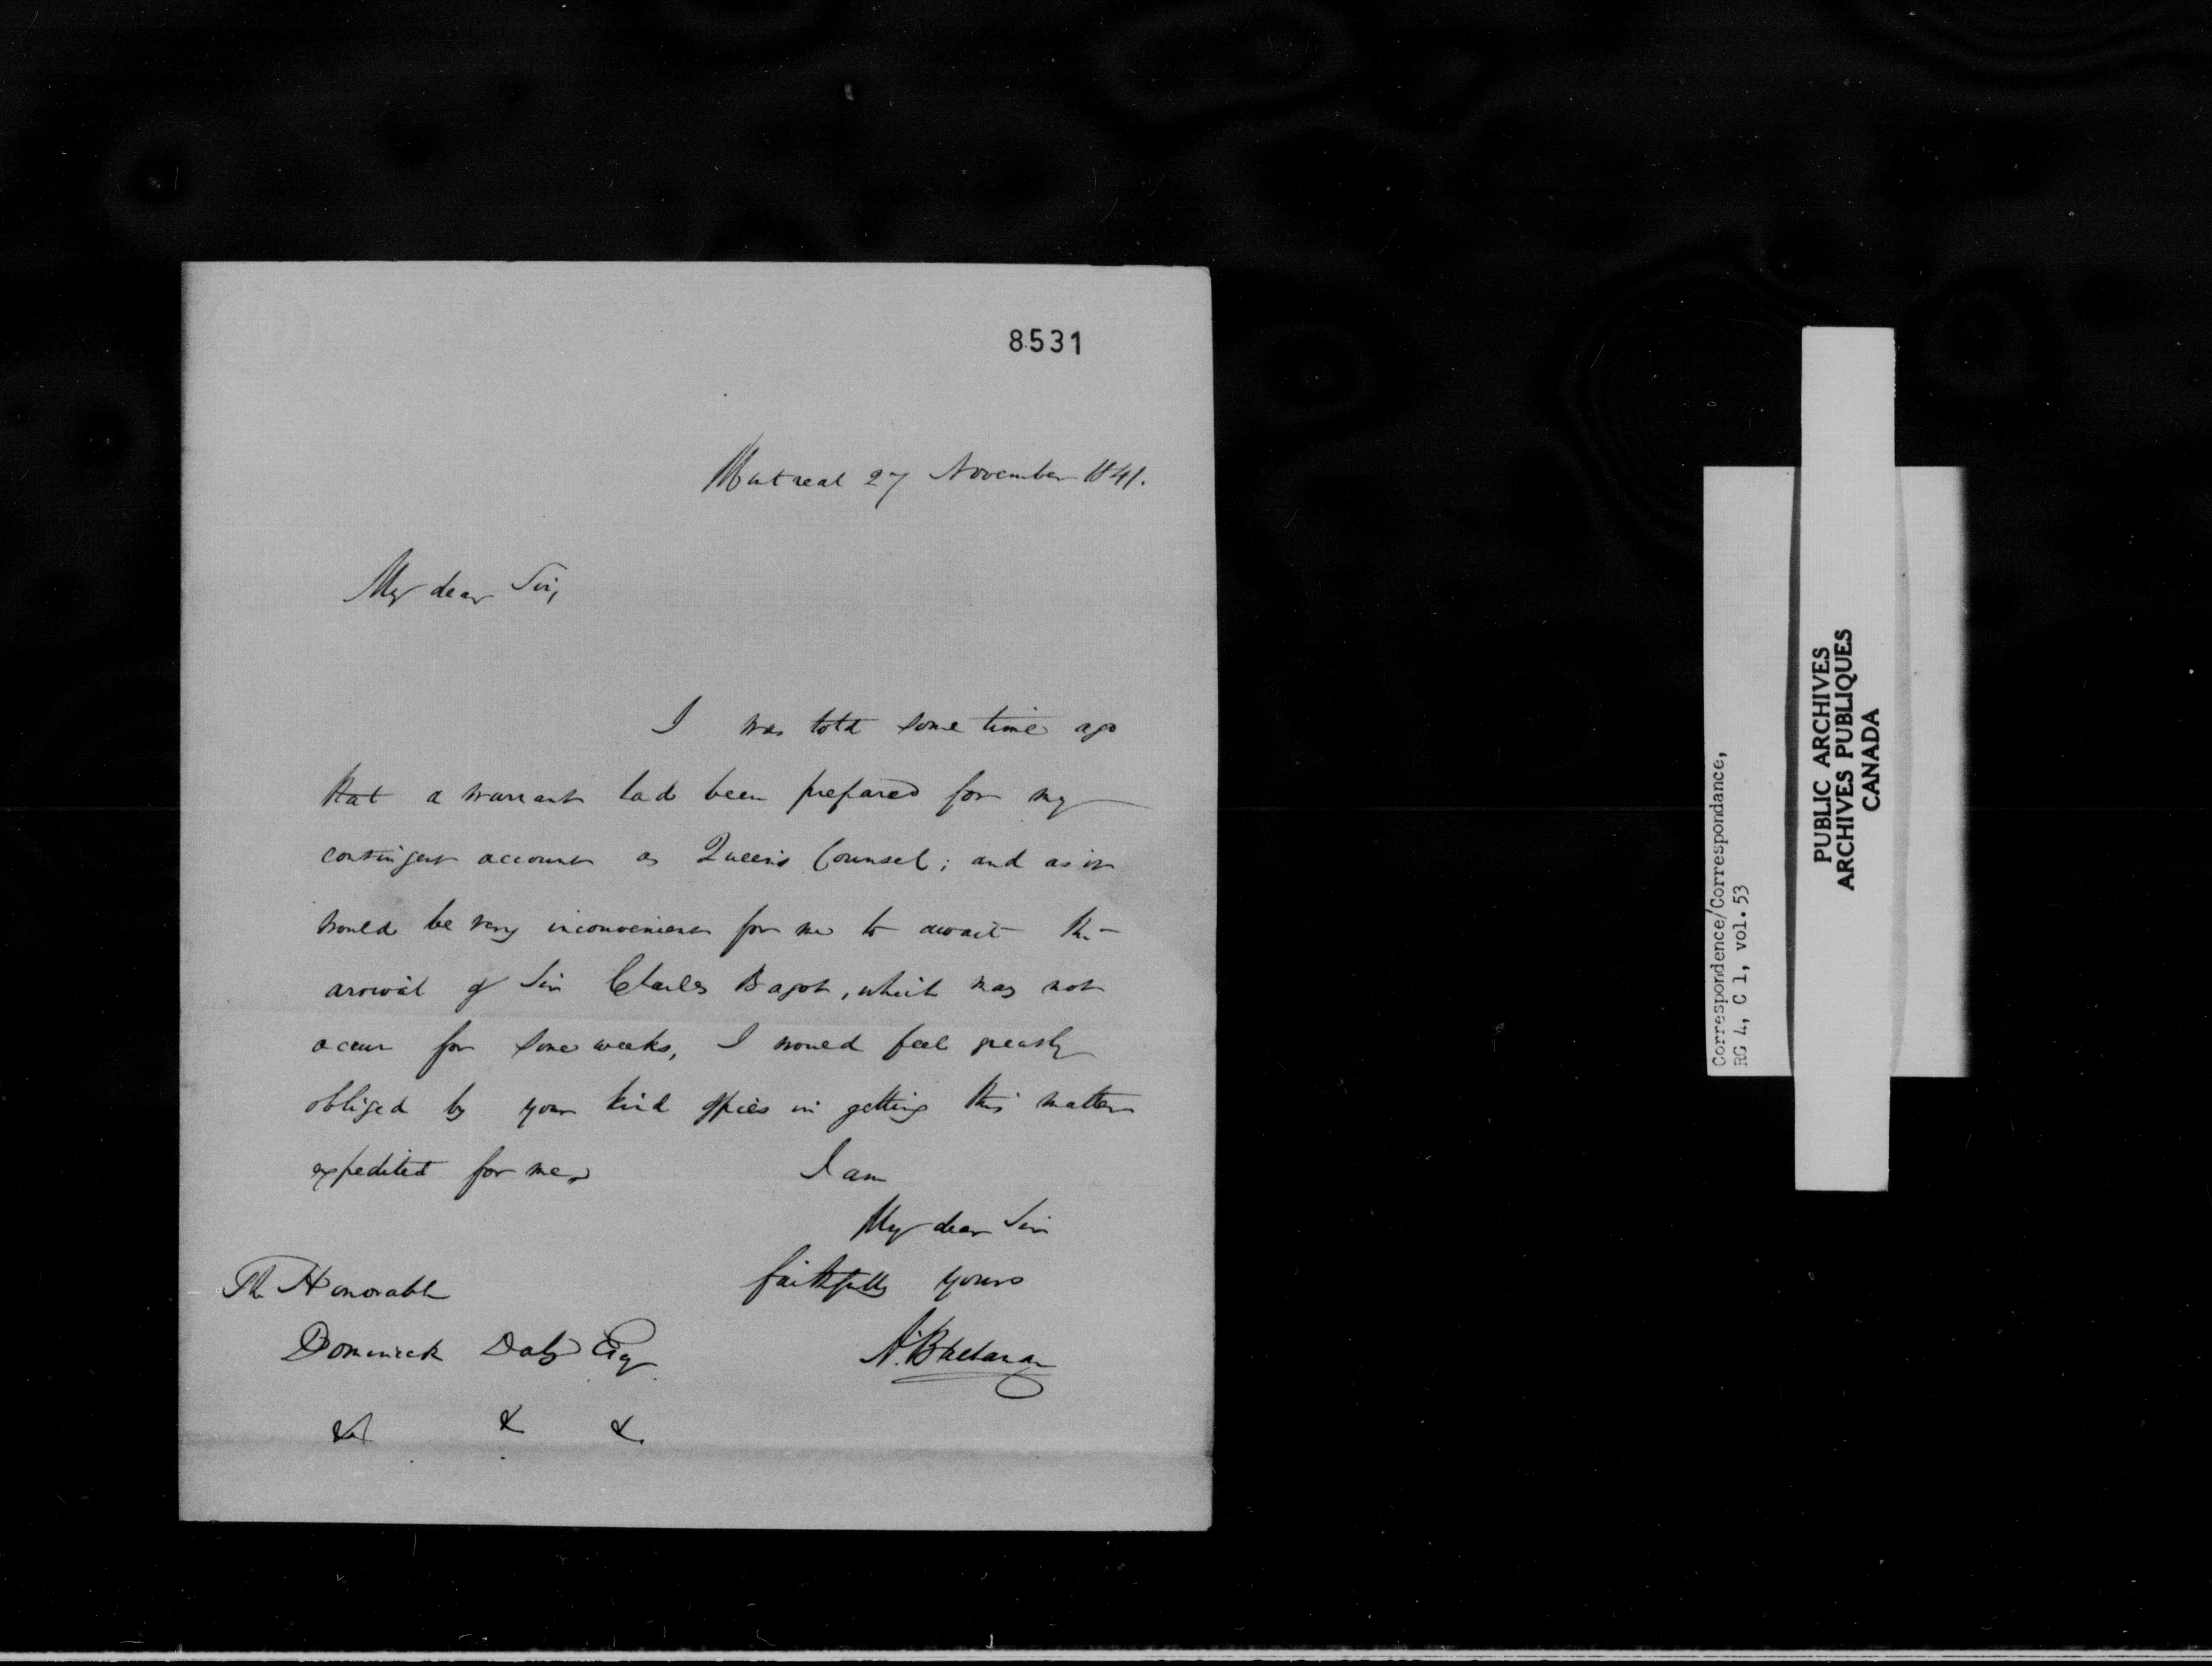 8531
Montreal 27 November 1841.
My dear Sir,
I was told some time ago
that a warrant had been prepared for my
contingent account as Queen's Counsel; and as it
would be very inconvenient for me to await the
arrival of Sir Charles Bagot, which may not
occur for some weeks, I would feel greatly
obliged by your kind offices in getting this matter
expedited for me.
I am
My dear Sir
faithfully yours
A. Buchanan
The Honorable
Dominick Daly Esq
&c & &.
Correspondence/Correspondance,
RG 4, C 1, vol.53
PUBLIC ARCHIVES
ARCHIVES PUBLIQUES
CANADA